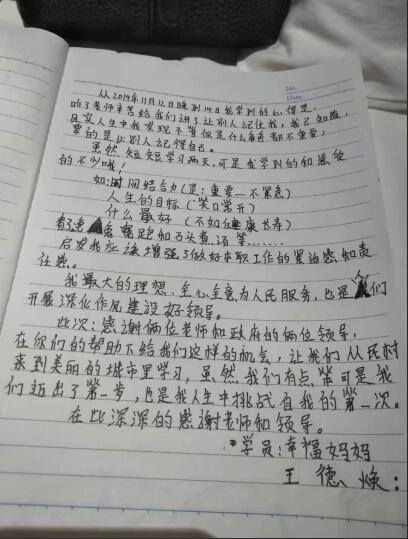 No.
Date
从2019年11月12日晚到14日我学到的心得是,
咱了老师辛苦给我们讲了让别人记住我,我己知随,
且实人生中我发现不管你是什么角色都不重要,
要的是让别人记得自己。
虽然短短学习两天,可是我学到的和感受
的不少哦!
如:时间结合力(是:重要一不紧急)
人生的目标(笑口常开)
什么最好(不如健康长寿)
龟兔赛跑和石头煮汤等……
启发我应该增强了做好本职工作的紧迫感和责
任感。
我最大的理想、全心全意为人民服务,也是们
开展深似作风建设好领导。
此次:感谢俩位老师和政府的俩位领导,
在你们的帮助下给我们这样的机会,让我们从民村
来到美丽的城市里学习,虽然我们有点笨可是我
们迈出了第一步,也是我人生中挑战自我的第一次。
在此深深的感谢老师和领导。
学员:幸福妈妈
王德焕: